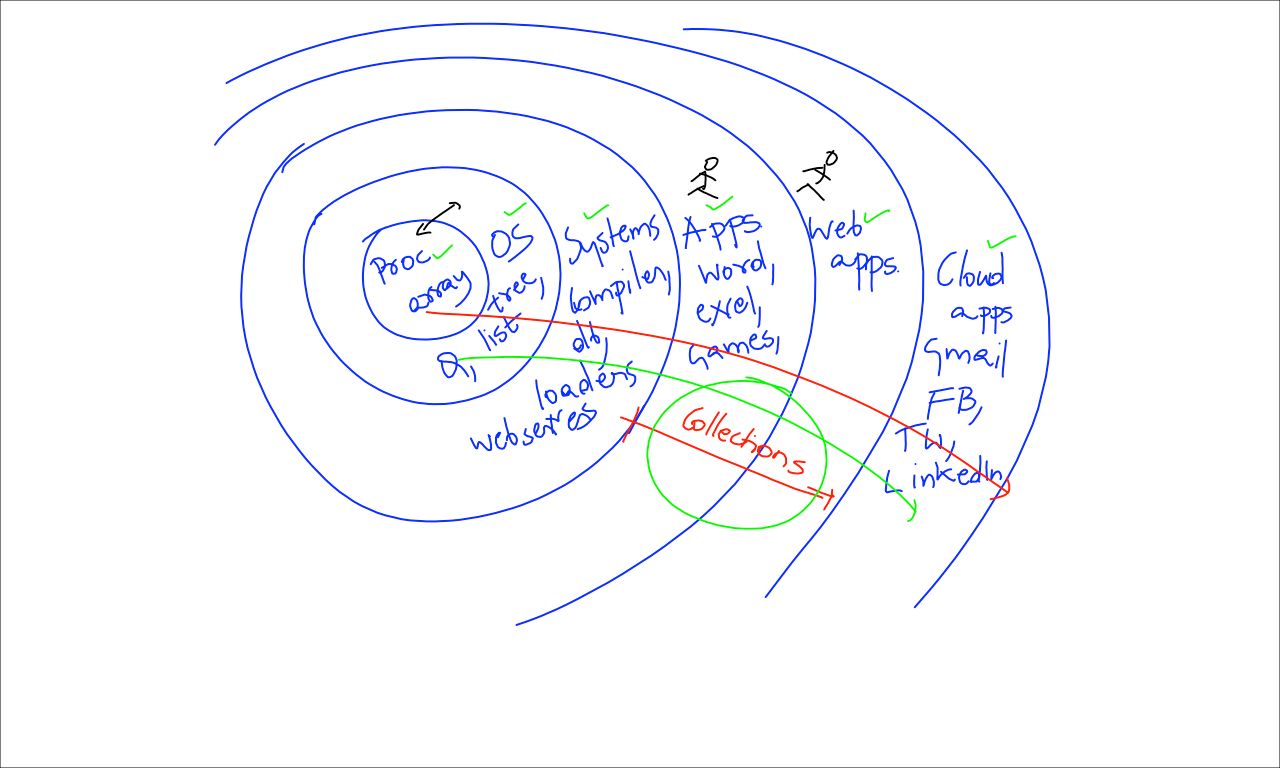 Proc
array
OS
tree,
list
Q,
Systems
compiler,
db,
loaders
Apps
word,
exel,
games,
Web
apps.
Cloud
apps
Gmail
FB,
TW,
LinkedIn
Collections